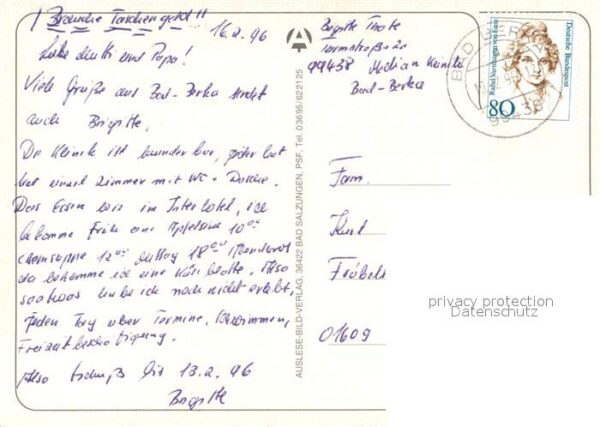 ! Brauche Taschengeld !!
16.2.96
Liebe Mutti und Papa!
Viele Grüße aus Bad-Berka sendet
auch Brigitte,
Die Klinik ist wunderbar, jeder hat
ein Zimmer mit WC + Dusche.
Das Essen wie im Interhotel, ich
bekomme Früh eine Apfelsine 10⁰⁰
12⁰⁰ Mittag 18⁰⁰ Abendbrot
da bekomme ich eine Also
so etwas habe ich noch nicht erlebt,
Jeden Tag über Termine, Schwimmen,
Freizeitbeschäftigung.
Also tschüß bis 13.2.96
Brigitte
AUSLESE-BILD-VERLAG, 36422 BAD SALZUNGEN, PSF, Tel. 03695/622125
Brigitte
99438 Median Klinik
Bad-Berka
BAD BERKA
99438
Deutsche Bundespost
Rahel Varnhagen von Ense
80
Fam.
Kurt
Fröbel
01609
privacy protection
Datenschutz